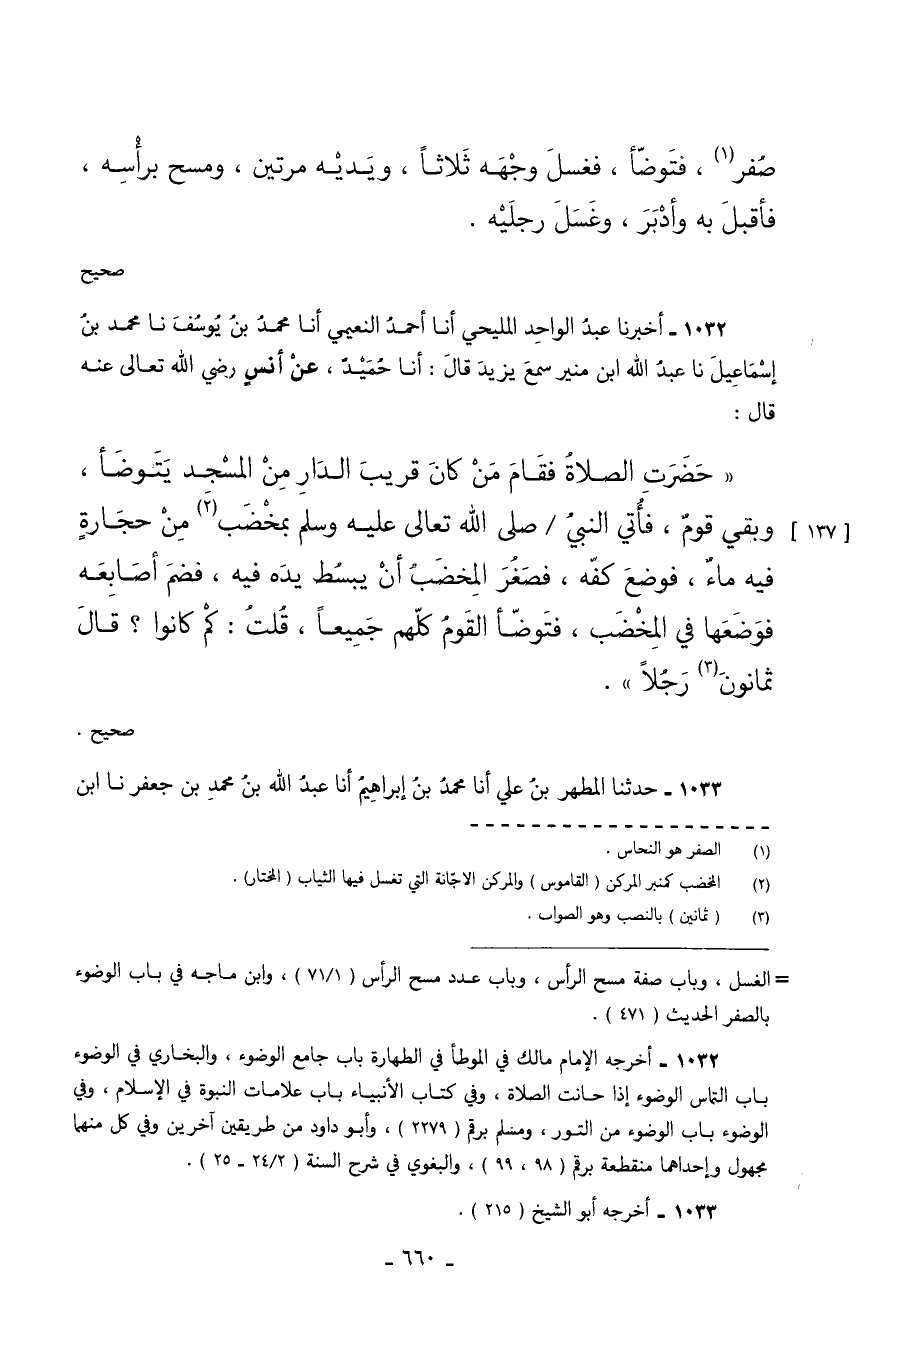 صُفر(١) ، فتَوضّأ ، فغسلَ وجْهَه ثَلاثاً ، ويَديْه مرتين ، ومسح برأْسِه ،
فأقبلَ به وأدْبَرَ ، وغَسَلَ رجلَيْه .
صحيح
١٠٣٢ ـ أخبرنا عبدُ الواحِد المليحي أنا أحمدُ النعيمي أنا محمدُ بنُ يُوسُفَ نا محمد بنُ
إسْمَاعِيلَ نا عبدُ الله ابن منير سمعَ يزيدَ قالَ : أنا حُمَيْدٌ ، عنْ أنسٍ رضي الله تعالى عنه
قال :
« حَضَرَتِ الصلاةُ فقَامَ مَنْ كانَ قريبَ الدَارِ مِنْ المسْجِد يَتَوضَأ ،
[ ١٣٧ ] وبقي قومٌ ، فأُتي النبيُ / صلى الله تعالى عليه وسلم بمخْضَب(٢) مِنْ حجَارةٍ
فيه ماءٌ ، فوضعَ كفّه ، فصَغُرَ المِخضَبُ أنْ يبسُط يدَه فيه ، فضمَ أصَابعَه
فوَضَعَها في المِخْضَب ، فتَوضّأ القَومُ كلّهم جَمِيعاً ، قُلتُ : كمْ كانوا ؟ قالَ
ثمانونَ(٣) رَجُلاً » .
صحيح .
١٠٣٣ ـ حدثنا المطهر بنُ علي أنا محمدُ بنُ إبراهِيمُ أنا عبدُ الله بنُ محمدِ بن جعفر نا ابن
(١) الصفر هو النحاس .
(٢) المخضب كمنبر المركن ( القاموس ) والمركن الاجّانة التي تغسل فيها الثياب ( المختار) .
(٣) ( ثمانين ) بالنصب وهو الصواب .
= الغسل ، وباب صفة مسح الرأس ، وباب عدد مسح الرأس ( ٧١/١ ) ، وابن ماجه في باب الوضوء
بالصفر الحديث ( ٤٧١ ) .
١٠٣٢ ـ أخرجه الإمام مالك في الموطأ في الطهارة باب جامع الوضوء ، والبخاري في الوضوء
باب التماس الوضوء إذا حانت الصلاة ، وفي كتاب الأنبياء باب علامات النبوة في الإسلام ، وفي
الوضوء باب الوضوء من التور ، ومسلم برقم ( ٢٢٧٩ ) ، وأبو داود من طريقين آخرين وفي كل منهما
مجهول وإحداهما منقطعة برقم ( ٩٨ ، ٩٩ ) ، والبغوي في شرح السنة ( ٢٤/٢ ـ ٢٥ ) .
١٠٣٣ ـ أخرجه أبو الشيخ ( ٢١٥ ) .
ـ ٦٦٠ ـ